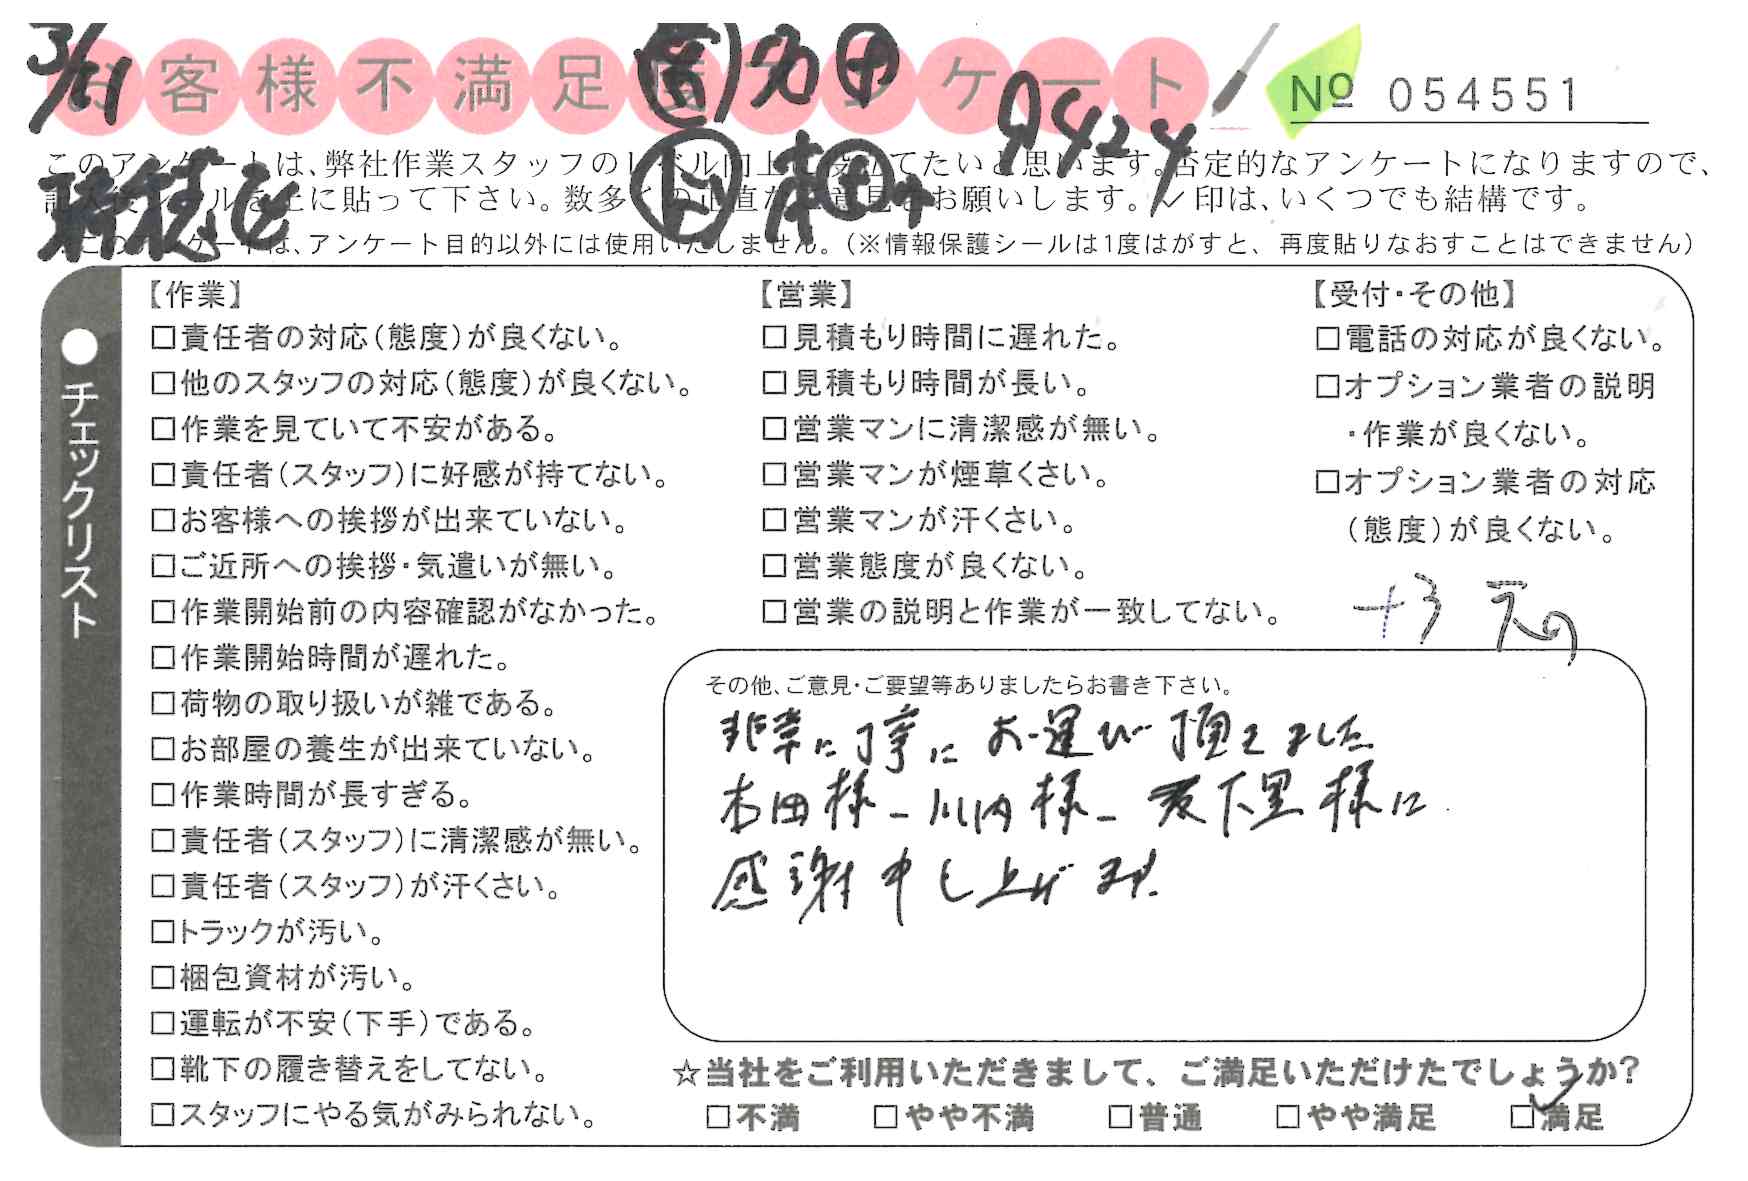 3/11
お客様不満足度アンケート
No 054551
9424
このアンケートは、弊社作業スタッフのレベル向上に役立てたいと思います。否定的なアンケートになりますので、
記入後シールを上に貼って下さい。数多くの正直なご意見をお願いします。✓印は、いくつでも結構です。
※このアンケートは、アンケート目的以外には使用いたしません。(※情報保護シールは1度はがすと、再度貼りなおすことはできません)
●チェックリスト
【作業】
□責任者の対応(態度)が良くない。
□他のスタッフの対応(態度)が良くない。
□作業を見ていて不安がある。
□責任者(スタッフ)に好感が持てない。
□お客様への挨拶が出来ていない。
□ご近所への挨拶・気遣いが無い。
□作業開始前の内容確認がなかった。
□作業開始時間が遅れた。
□荷物の取り扱いが雑である。
□お部屋の養生が出来ていない。
□作業時間が長すぎる。
□責任者(スタッフ)に清潔感が無い。
□責任者(スタッフ)が汗くさい。
□トラックが汚い。
□梱包資材が汚い。
□運転が不安(下手)である。
□靴下の履き替えをしてない。
□スタッフにやる気がみられない。
【営業】
□見積もり時間に遅れた。
□見積もり時間が長い。
□営業マンに清潔感が無い。
□営業マンが煙草くさい。
□営業マンが汗くさい。
□営業態度が良くない。
□営業の説明と作業が一致してない。
【受付・その他】
□電話の対応が良くない。
□オプション業者の説明
・作業が良くない。
□オプション業者の対応
(態度)が良くない。
その他、ご意見・ご要望等ありましたらお書き下さい。
非常に丁寧にお運び頂きました
本田様-川内様-下里様に
感謝申し上げます.
☆当社をご利用いただきまして、ご満足いただけたでしょうか?
□不満 □やや不満 □普通 □やや満足 □満足